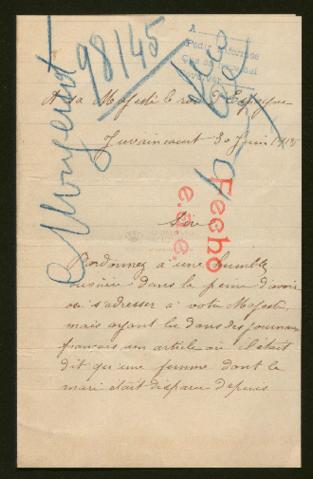 Mougenot
98145
A
A sa Majesté le roi d'Espagne
Juvaincourt 30 Juin 1915
Fecho
e.d.e.
Sire
Pardonnez à une humble
dans la peine d'avoir
osé s'adresser à votre Majesté,
mais ayant lu dans des journaux
français un article où il était
dit qu'une femme dont le
mari était disparu depuis